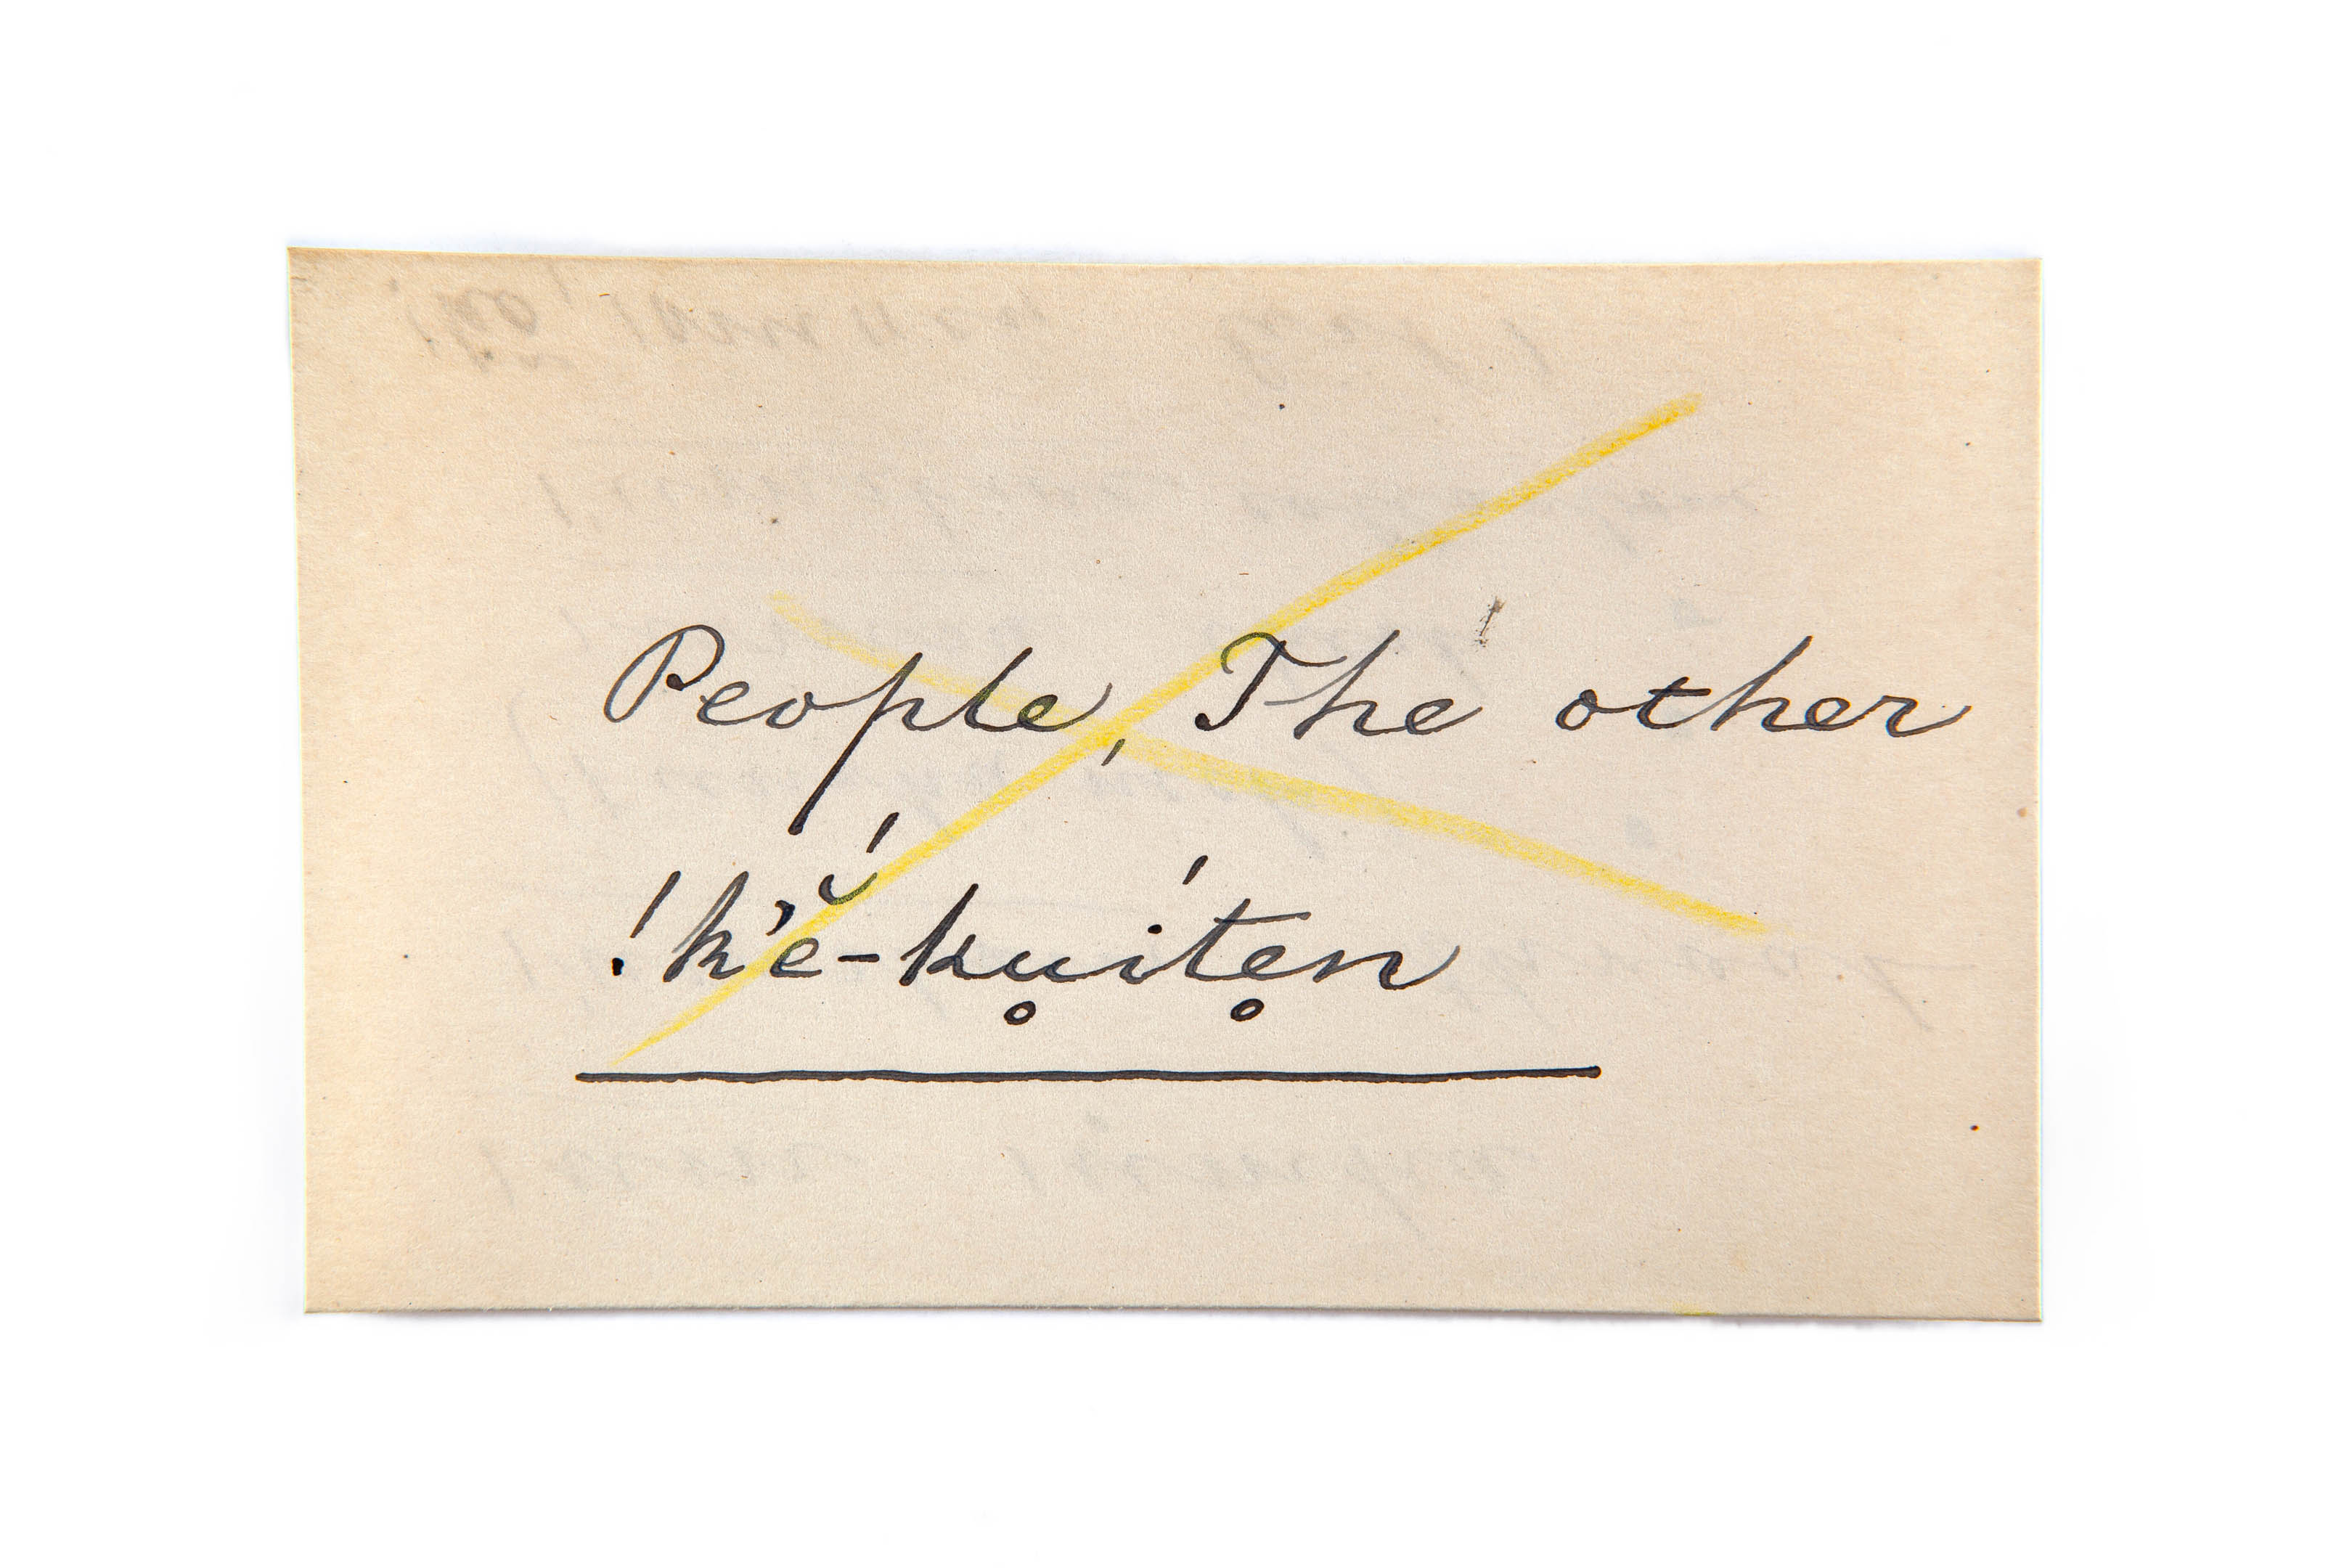 People, The other
!k'ĕ́-ku̥íte̥n